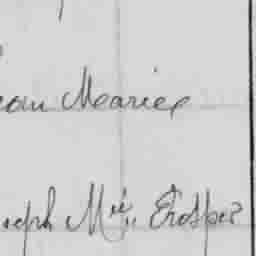 ean Marie
seph Mie Prosper